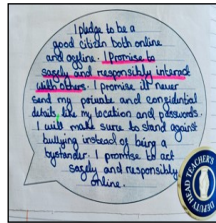 I pledge to be a
good citizen both online
and offline. I promise to
safely and responsibly interact
with others. I promise to never
send my private and considential
details like my location and passwords.
I will make sure to stand against
bullying instead of being a
bystander. I promise to act
safely and responsibly
online.
DEPUTY HEAD TEACHER'S